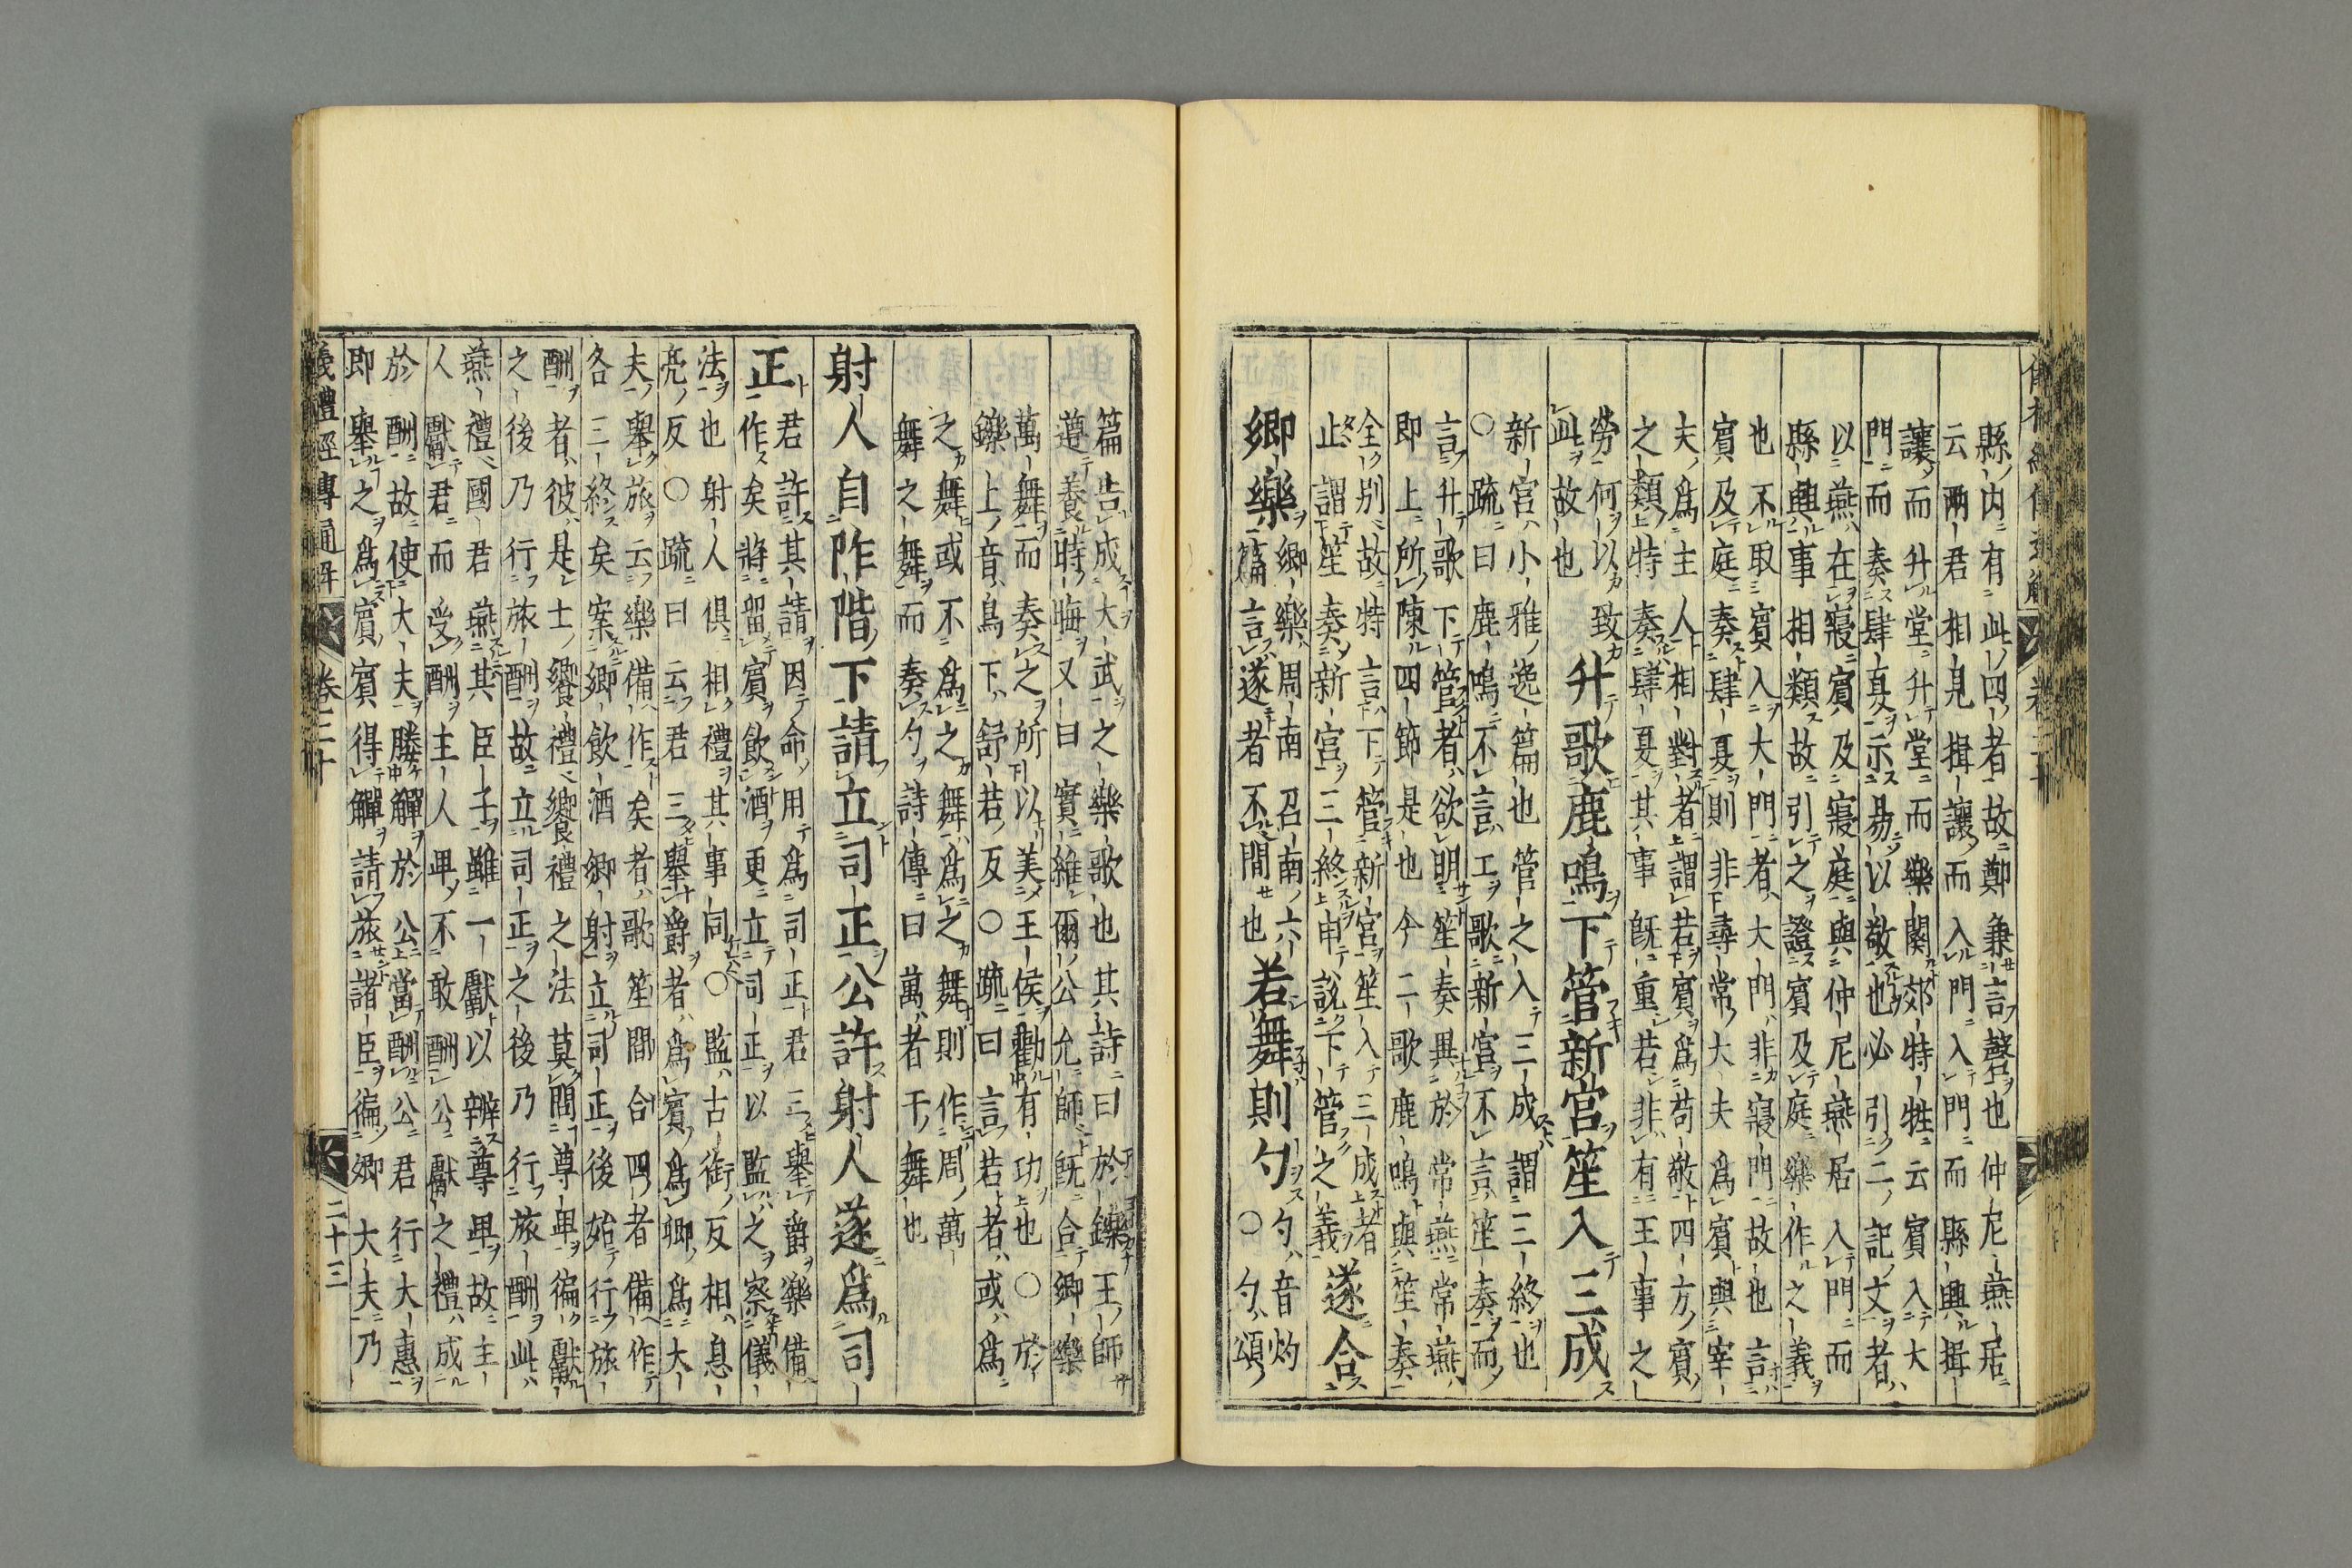 縣内有此四者故鄭兼言磬也仲尼燕居
云兩君相見揖讓而入門入門而縣興揖
讓而升堂升堂而樂闋郊特牲云賓入大
門而奏肆夏示易以敬也必引二記文者
以燕在寢賓及寢庭與仲尼燕居入門而
縣興事相類故引之證賓及庭樂作之義
也不取賓入大門者大門非寢門故也言
賓及庭奏肆夏則非尋常大夫爲賓與宰
夫爲主人相對者謂若賓爲苟敬四方賓
之類特奏肆夏其事既重若非有王事之
勞何以致
此故也
升歌鹿鳴下管新宮笙入三成
新宮小雅逸篇也管之入三成謂三終也
○疏曰鹿鳴不言工歌新宮不言笙奏而
言升歌下管者欲明笙奏異於常燕常燕
即上所陳四節是也今二歌鹿鳴與笙奏
全別故特言下管新宮笙入三成者
止謂笙奏新宮三終申說下管之義
遂合
鄉樂
鄉樂周南召南六
篇言遂者不間也
若舞則勺
勺音灼
○勺頌
篇告成大武之樂歌也其詩曰於鑠王師
遵養時晦又曰實維爾公允師既合鄉樂
萬舞而奏之所以美王侯勸有功也○於
鑠上音烏下舒若反○疏曰言若者或爲
之舞或不爲之舞爲之舞則作周萬
舞之舞而奏勺詩傳曰萬者干舞也
射人自阼階下請立司正公許射人遂爲司
正
君許其請因命用爲司正君三舉爵樂備
作矣將留賓飲酒更立司正以監之察儀
法也射人俱相禮其事同○監古銜反相息
亮反○疏曰云君三舉爵者爲賓爲卿爲大
夫舉旅云樂備作矣者歌笙間合四者備作
各三終矣案鄉飲酒鄉射立司正後始行旅
酬者彼是士饗禮饗禮之法莫間尊卑徧獻
之後乃行旅酬故立司正之後乃行旅酬此
燕禮國君燕其臣子雖一獻以辨尊卑故主
人獻君而受酬主人卑不敢酬公獻之禮成
於酬故使大夫媵觶於公當酬公君行大惠
即舉之爲賓賓得觶請旅諸臣徧卿大夫乃
儀禮經傳通解
卷二十
二十三